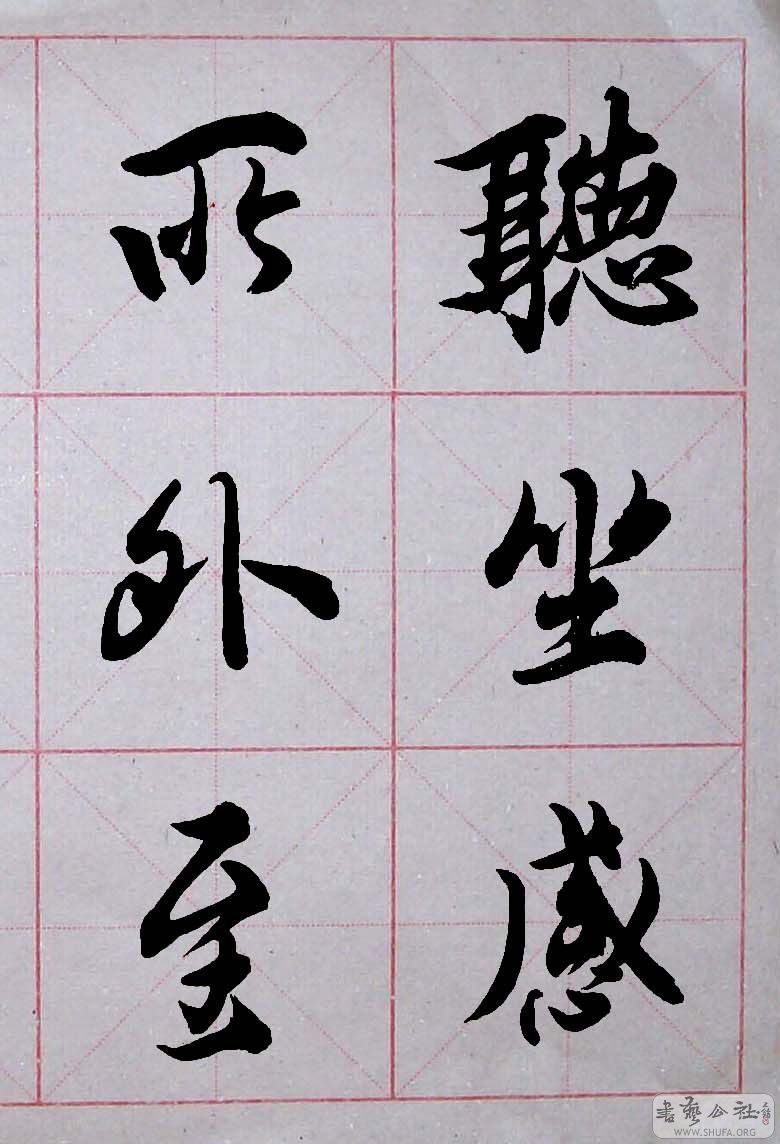 聽坐感
所外至
書藝公社
WWW.SHUFA.ORG